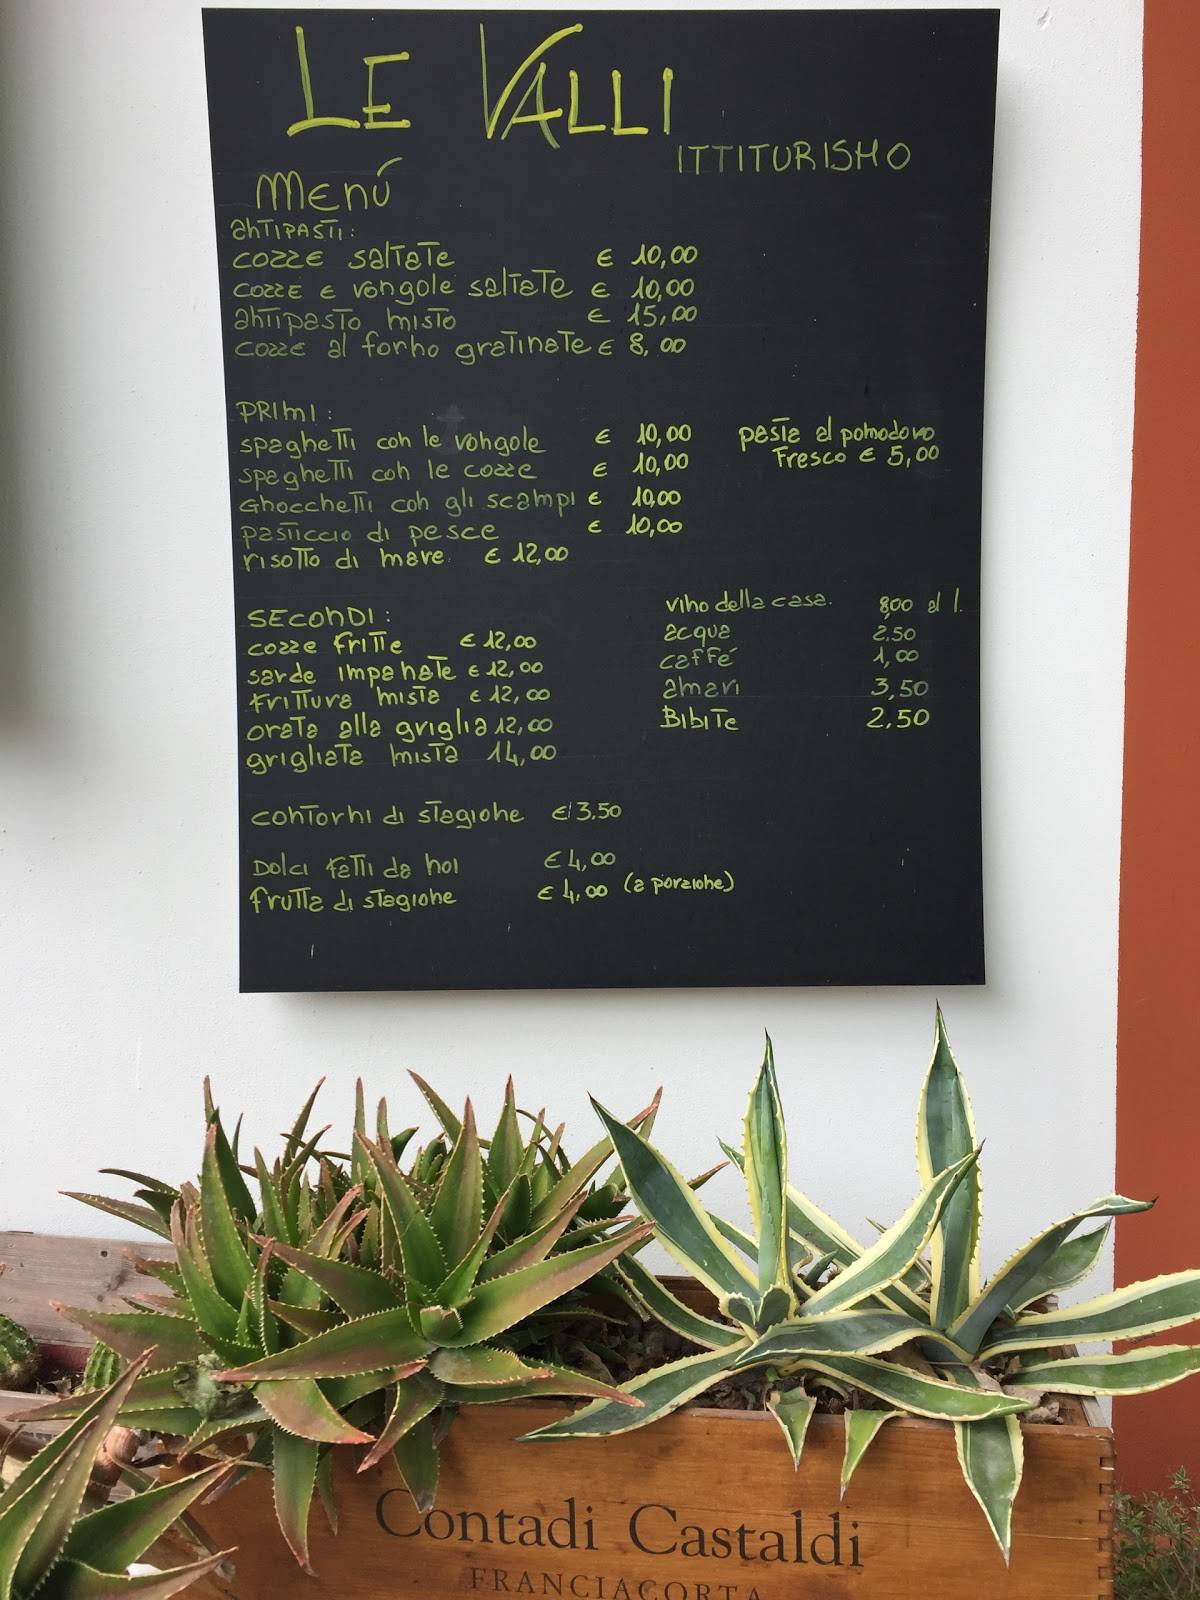 LE VALLI
ITTITURISMO
MENÚ
ANTIPASTI:
COZZE SALTATE € 10,00
COZZE E VONGOLE SALTATE € 10,00
ANTIPASTO MISTO € 15,00
COZZE AL FORNO GRATINATE € 8,00
PRIMI:
SPAGHETTI CON LE VONGOLE € 10,00
SPAGHETTI CON LE COZZE € 10,00
GNOCCHETTI CON GLI SCAMPI € 10,00
PASTICCIO DI PESCE € 10,00
RISOTTO DI MARE € 12,00
PASTA AL POMODORO
FRESCO € 5,00
SECONDI:
COZZE FRITTE € 12,00
SARDE IMPANATE € 12,00
FRITTURA MISTA € 12,00
ORATA ALLA GRIGLIA 12,00
GRIGLIATA MISTA 14,00
VINO DELLA CASA. 8,00 al l.
ACQUA 2,50
CAFFÉ 1,00
AMARI 3,50
BIBITE 2,50
CONTORNI DI STAGIONE € 3,50
DOLCI FATTI DA NOI € 4,00
FRUTTA DI STAGIONE € 4,00 (A PORZIONE)
Contadi Castaldi
FRANCIACORTA